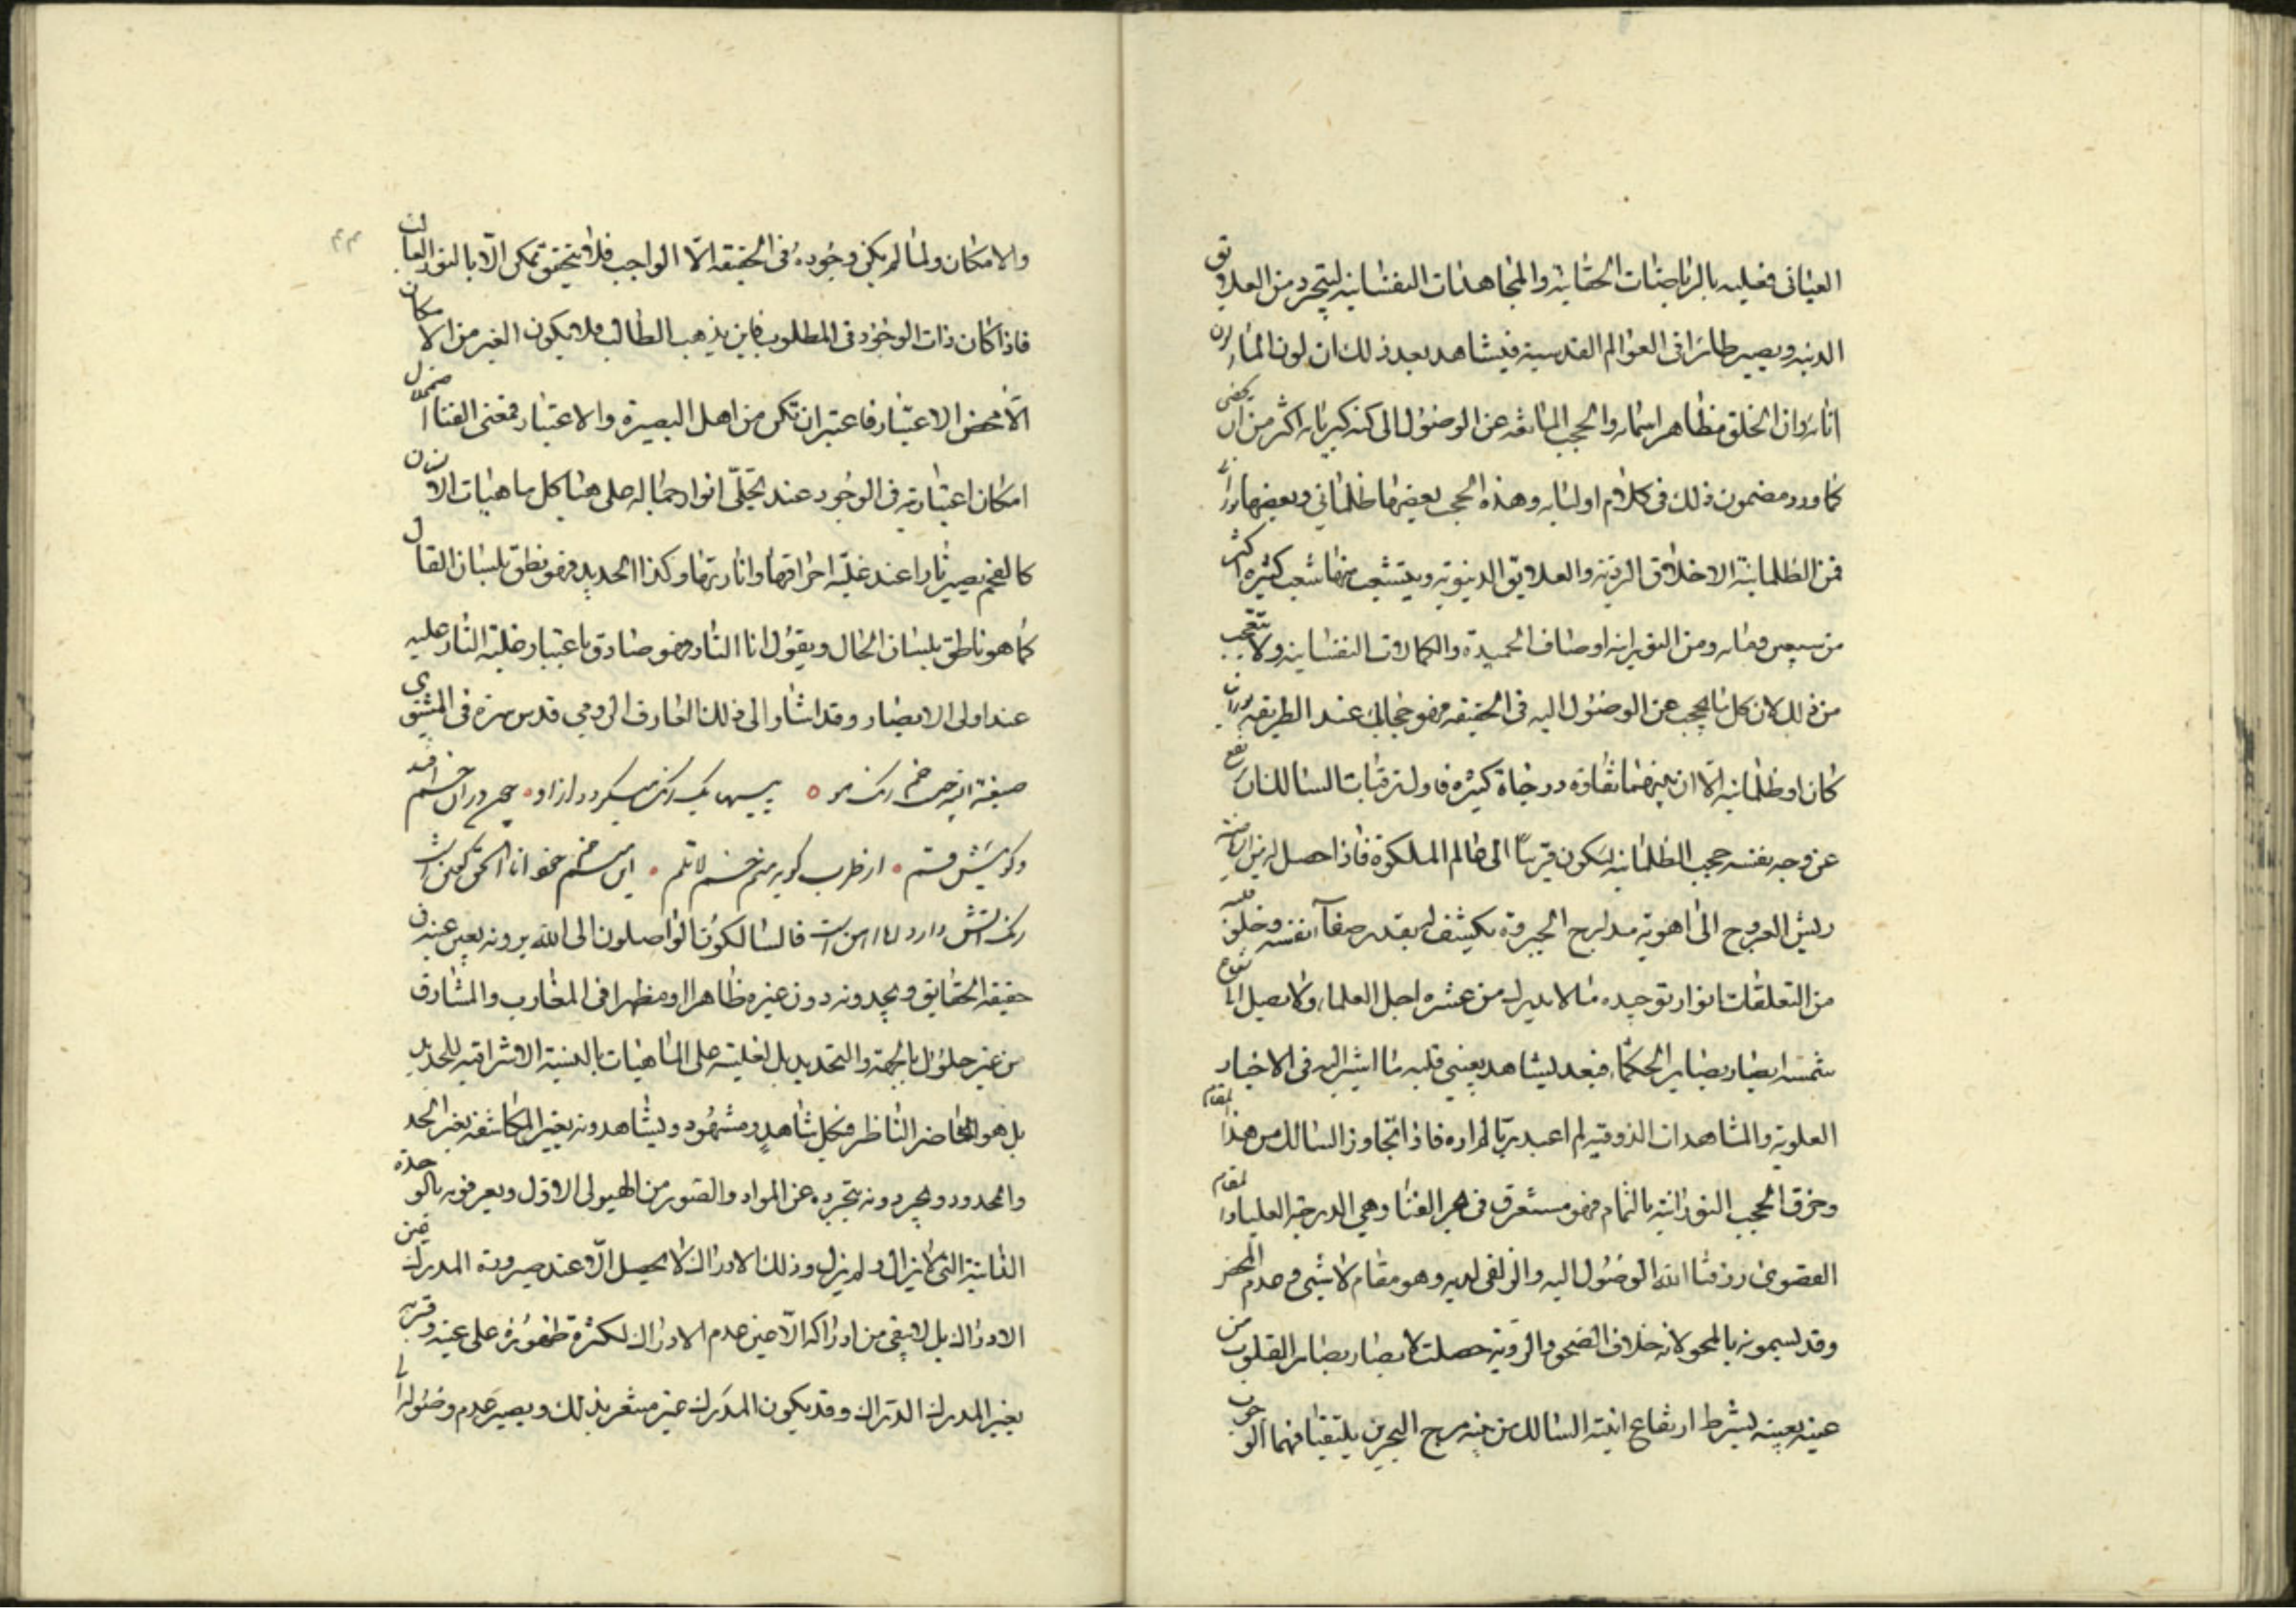 العيانى فعليه بالرياضات الحقانية والمجاهدات النفسانيه ليتجرد من العلايق
الدنيه ويصير طائرا فى العوالم القدسية فيشاهد بعد ذلك ان لون الماء لون
انائه وان الخلق مظاهر اسمائه والحجب المانعه عن الوصول الى كنه كبريائه اكثر من ان يحصى
كما ورد مضمون ذلك فى كلام اوليائه وهذه الحجب بعضها ظلمانى وبعضها نورانى
فمن الظلمانية الاخلاق الردية والعلايق الدنيوية ويتشعب منها شعب كثيره اكثر
من ومن النورانيه اوصاف الحميدة والكمالات النفسانيه ولا تتعجب
من ذلك لان كل ما يحجب عن الوصول اليه فى الحقيقه فهو حجاب عند الطريقه نورانيا
كان او ظلمانيه الا ان بينهما تفاوة درجاة كثيره فاول ترقيات السالك ان يرفع
عن وجه نفسه حجب الظلمانيه ليكون قريبا الى عالم الملكوة فاذا حصل له من الرياضة
ريش العروج الى اهوية مدارج الجبروة يكشف له بقدر صفاء نفسه وخلو قلبه
من التعلقات انوار توحيده ما لا يدرك من عشره اجل العلماء ولا يصل الى شعاع
شمسه ابصار بصاير الحكماء فبعد يشاهد بعينى قلبه ما اشير اليه فى الاخبار
العلوية والمشاهدات الذوقيه لم اعبد ربا لم اره فاذا تجاوز السالك من هذا المقام
وخرق الحجب النورانية بالتمام فهو مستغرق فى بحر الفنا وهي الدرجة العليا والمقام
القصوى رزقنا الله الوصول اليه والزلفى لديه وهو مقام لا شيئى وعدم المحض
وقد يسمونه بالمحو لانه خلاف الصحو والروية حصلت لابصار بصاير القلوب من
عينه بعينه بشرط ارتفاع انية السالك من بينه مرج البحرين يلتقيان فهما الوجوب
والامكان ولما لم يكن وجوده فى الحقيقه الا الواجب فلا يتحقق تمكن الا بالنور
فاذا كان ذات الوجود فى المطلوب فاين يذهب الطالب فلا يكون الغير من الامكان
الا محض الاعتبار فاعتبر ان تكن من اهل البصيرة والاعتبار فمعنى الفنا اضمحلال
امكان اعتباريه فى الوجود عند تجلى انوار جماله على هياكل ماهيات الا
كالفحم يصير نارا عند غلبة احراقها وانارتها وكذا الحديد فهو نطق بلسان القال
كما هو ناطق بلسان الحال ويقول انا النار فهو صادق باعتبار غلبة النار عليه
عند اولى الابصار وقد اشار الى ذلك العارف الرومي قدس سره فى المثنوى
صبغة الله خم رنگ هو پيسها يك رنگ ميگردد از او چون در ان خم افتد
وگويش قم از طرب گويد منم خم لا تلم اين منم خم خود انا الحق گفتن است
رنگ اتش دارد اما اهن است فالسالكون الواصلون الى الله يرونه بعين عينه فى
حقيقة الحقايق ويجدونه دون غيره ظاهرا ومظهرا فى المغارب والمشارق
من غير حلول بالجهة والتحديد بل لغلبته على الماهيات بالنسبة الاشراقيه للحديد
بل هو الحاضر الناظر فى كل شاهد ومشهود ويشاهدونه بغير المكاشفه بغير الحد
والمحدود ويجردونه بتجرده عن المواد والصور من الهيولى الاول ويعرفونه بالوحدة
الذاتية التى لا يزال ولم يزل وذلك الادراك لا يحصل الا عند صيرورة المدرك عين
الادراك بل لا يبقى من ادراكه الا حين عدم الادراك لكثرة ظهوره على عينه وقربه
بغير المدرك الدراك وقد يكون المدرك غير مشعر بذلك ويصير عدم وصوله